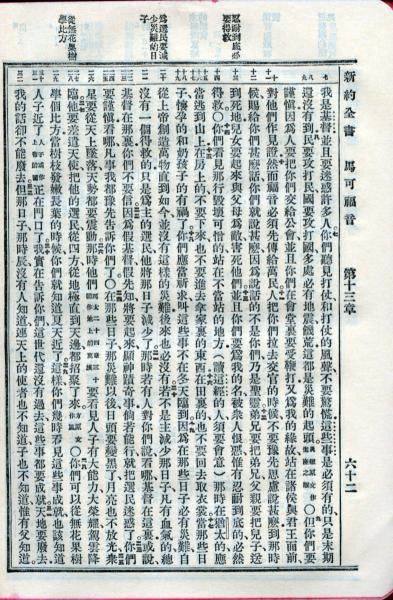 新約全書　馬可福音　第十三章　六十二
忍耐到底必要得救
爲選民要減少災難的日子
從無花果樹學比方
我是基督並且要迷惑許多人你們聽見打仗和打仗的風聲不要驚慌這些事是必須有的只是末期
還沒有到民要攻打民國要攻打國多處必有地震饑荒這都是災難的起頭○但你們要
謹愼因爲人要把你們交給公會並且你們在會堂裏要受鞭打又爲我的緣故站在諸侯與君王面前
對他們作見證然而福音必須先傳給萬民人把你們拉去交官的時候不要預先思慮說甚麼到那時
候賜給你們甚麼話你們就說甚麼因爲說話的不是你們乃是聖靈弟兄要把弟兄父親要把兒子送
到死地兒女要起來與父母爲敵害死他們並且你們要爲我的名被衆人恨惡惟有忍耐到底的必然
得救○你們看見那行毀壞可憎的站在不當站的地方（讀這經的人須要會意）那時在猶太的應
當逃到山上在房上的不要下來也不要進去拿家裏的東西在田裏的也不要回去取衣裳當那些日
子懷孕的和奶孩子的有禍了你們應當祈求叫這些事不在冬天臨到因爲在那些日子必有災難自
從上帝創造萬物直到如今並沒有這樣的災難後來也必沒有若不是主減少那日子凡有血氣的總
沒有一個得救的只是爲主的選民他將那日子減少了那時若有人對你們說看哪基督在這裏或說
基督在那裏你們不要信因爲假基督假先知將要起來顯神蹟奇事倘若能行就把選民迷惑了你們
要謹愼看哪凡事我都預先告訴你們了○在那些日子那災難以後日頭要變黑了月亮也不放光衆
星要從天上墜落天勢都要震動那時他們要看見人子有大能力大榮耀駕雲降
臨他要差遣天使把他的選民從四方從地極直到天邊都招聚了來○你們可以從無花果樹
學個比方當樹枝發嫩長葉的時候你們就知道夏天近了這樣你們幾時看見這些事成就也該知道
人子近了正在門口了我實在告訴你們這世代還沒有過去這些事都要成就天地要廢去
我的話卻不能廢去但那日子那時辰沒有人知道連天上的使者也不知道子也不知道惟有父知道